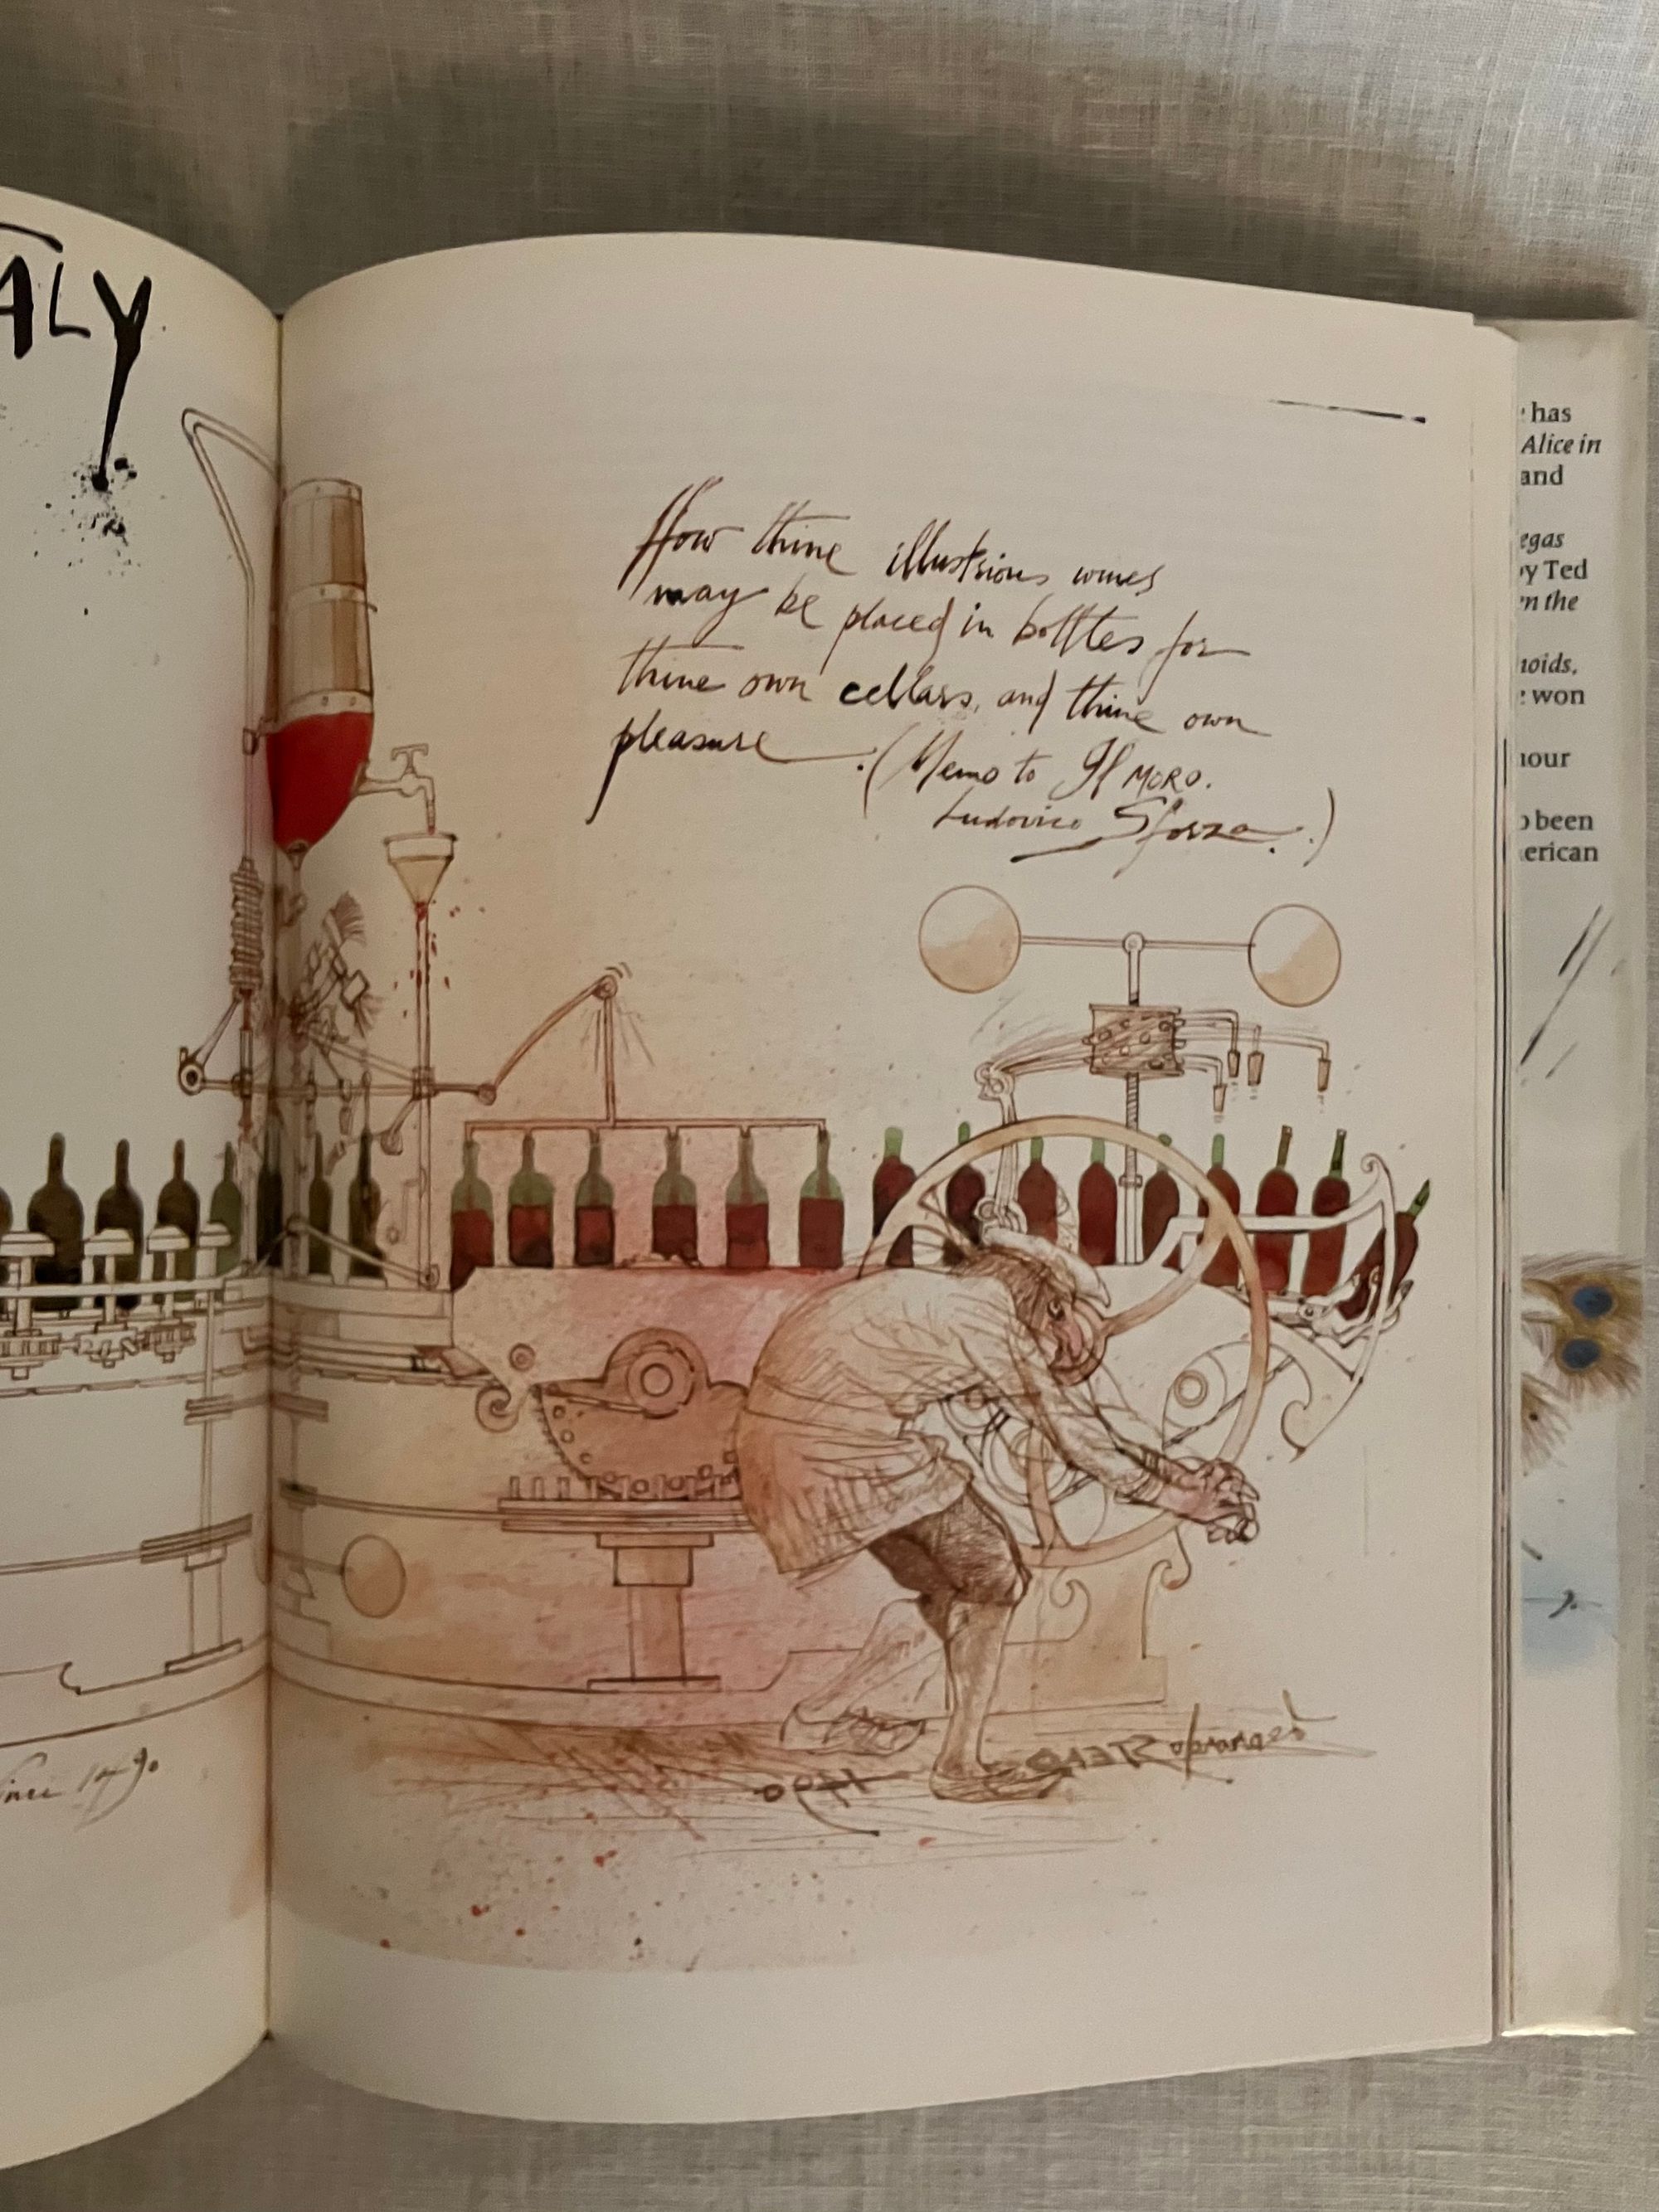 ALY
How thine illustrious wines
may be placed in bottles for
thine own cellars, and thine own
pleasure. (Memo to Il MORO.
Ludovico Sforza.)
Since 1490
Leonardo STEAD
1490
has
Alice in
and
egas
y Ted
n the
noids.
won
nour
been
erican